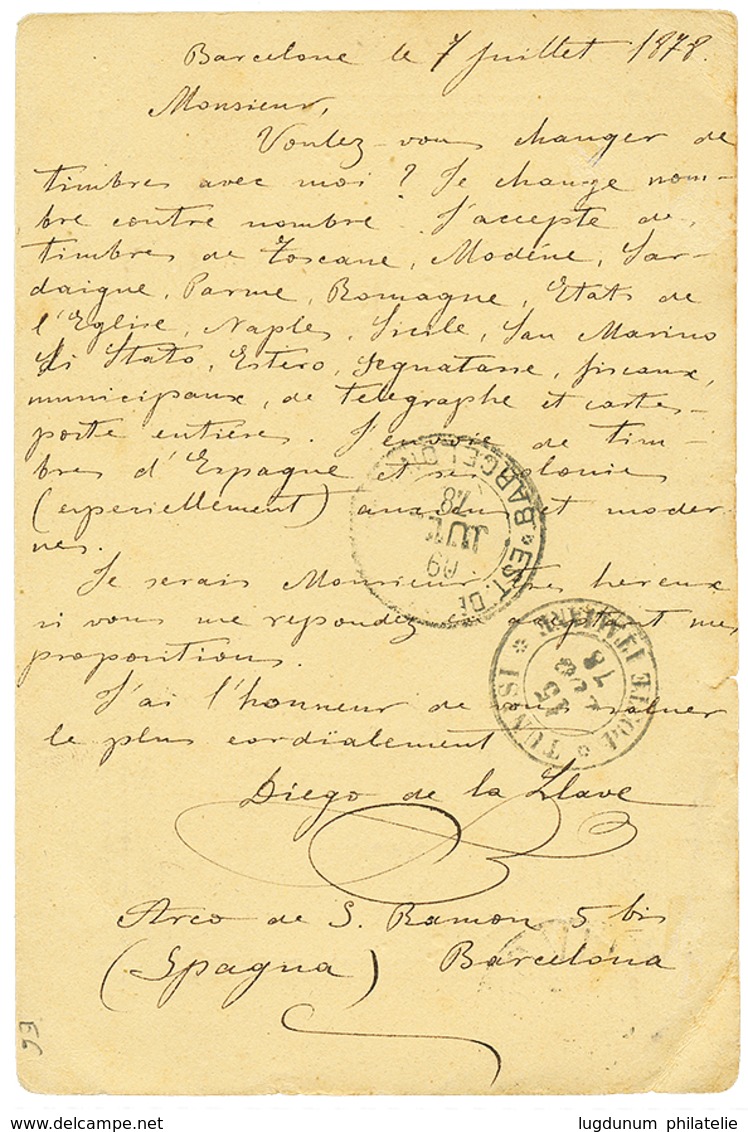 Barcelone le 7 Juillet 1878.
Monsieur,
Voulez-vous changer de
timbres avec moi ? Je change nom-
bre contre nombre. J'accepte de
timbres de Toscane, Modéne, Sar-
daigne, Parme, Romagne, Etats de
l'Eglise, Naples, Sicile, San Marino
Li Stato, Estero, Segnatasse, fiscaux,
municipaux, de telegraphe et cartes-
poste entières. J'envoie de tim-
bres d'Espagne et ses colonies
(experiellement) anciens et moder-
nes.
Je serais Monsieur très hereux
si vous me repondez en acceptant mes
propositions.
J'ai l'honneur de vous saluer
le plus cordïalement
Diego de la Llave
Arco de S. Ramon 5 bis
(Spagna) Barcelona
EST. DE BARCELON
09
JUL
78
TUNISI * POSTE ITALIANE *
15
78
93
lugdunum philatelie